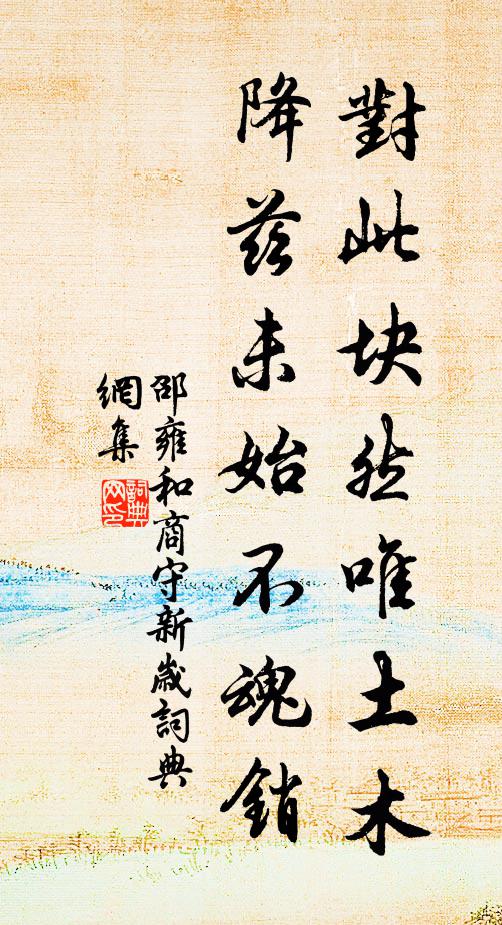 對此块然唯土木
降茲未始不魂銷
邵雍和商守新歲詞典
網集
詞典網印